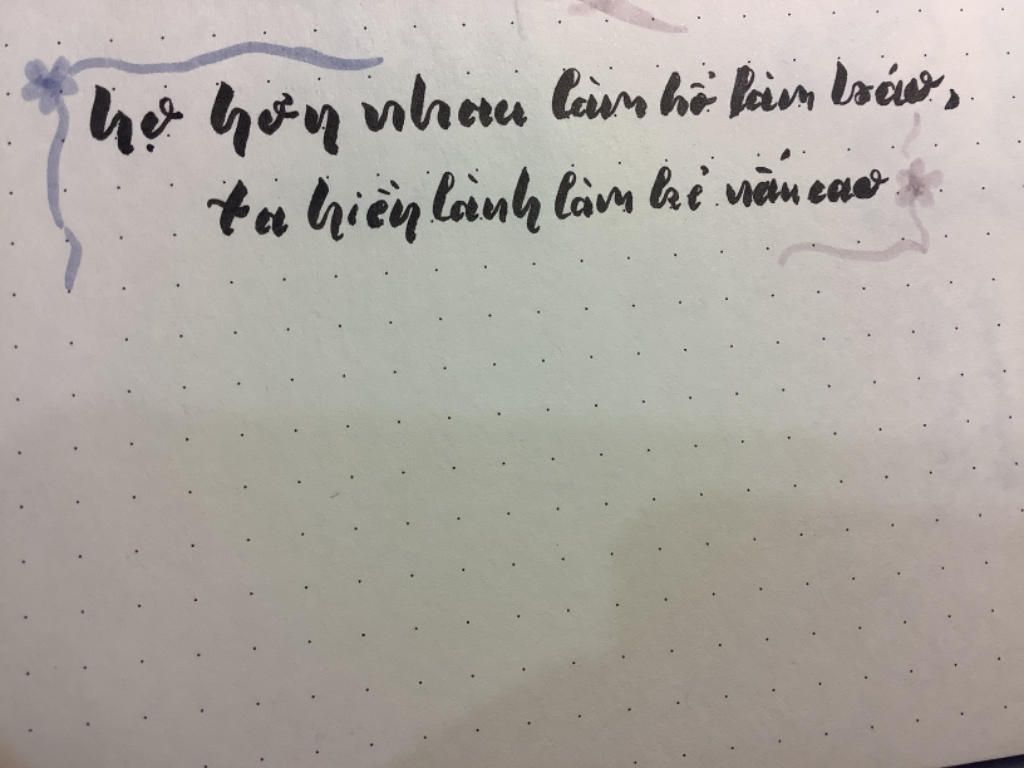 họ hơn nhau làm hổ làm báo,
ta hiền lành làm kẻ nấu cao